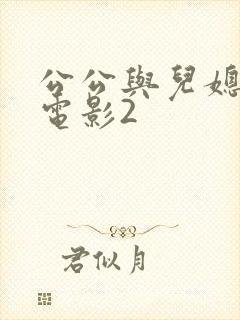 公公與兒媳
電影2
君似月